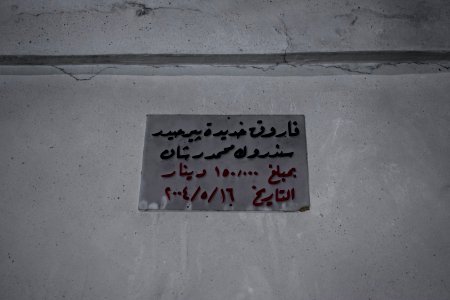 فاروق خديدة پيرحيد
سندروك محمد رشان
بمبلغ ١٥٠٠٠٠ دينار
التاريخ ٢٠٠٤/٥/١٦